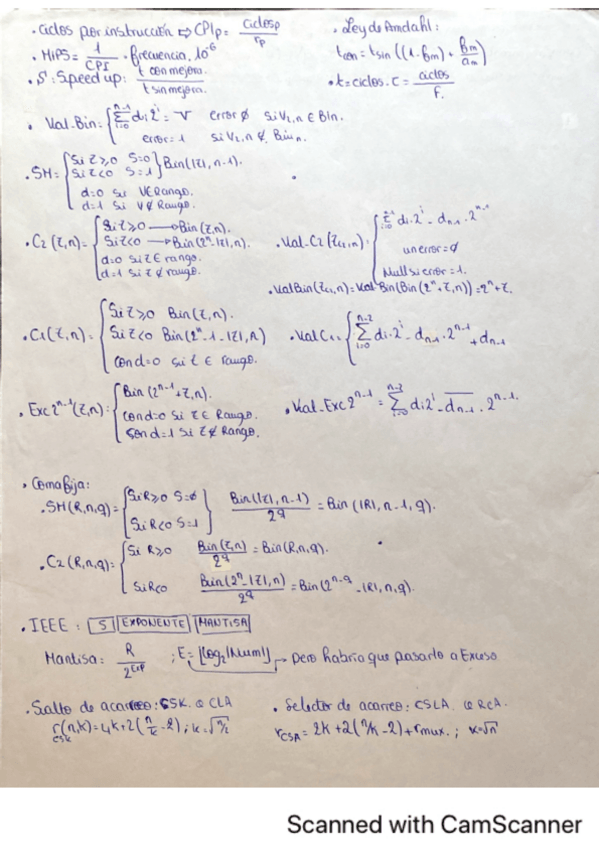 . Ciclos por instrucción ⇨ CPIp = ciclosp / rp
. MiPS = 1/CPI · frecuencia · 10^-6
. S: Speed up: t con mejora. / t sin mejora.
. Ley de Amdahl:
tcon = tsin ((1-fm) + fm/am)
. t = ciclos · C = ciclos / F.
. Val-Bin = { n-1 Σ i=0 di 2^i = V error ∅ si V2,n ∈ Bin.
error = 1 si V2,n ∉ Binn.
. SM = { Si Z ≥ 0 S=0
Si Z < 0 S=1 } Bin(|Z|, n-1).
d=0 si V ∈ Rango.
d=1 si V ∉ Rango.
. C2 (Z,n) = { Si Z ≥ 0 → Bin(Z,n).
Si Z < 0 → Bin(2^n - |Z|, n).
d=0 si Z ∈ rango.
d=1 si Z ∉ rango.
. Val-C2 (Zc2,n) { Σ i=0 di·2^i - dn-1 · 2^n-1
un error = ∅
Null si error = 1.
. ValBin(Zc2,n) = Val Bin(Bin(2^n + Z, n)) = 2^n + Z.
. C1(Z,n) = { Si Z ≥ 0 Bin(Z,n).
Si Z < 0 Bin(2^n - 1 - |Z|, n)
con d=0 si Z ∈ rango.
. Val C1 = { n-2 Σ i=0 di·2^i - dn-1 · 2^n-1 + dn-1
. Exc 2^n-1 (Z,n) = { Bin (2^n-1 + Z, n).
con d=0 si Z ∈ Rango.
con d=1 si Z ∉ Rango.
. Val-Exc 2^n-1 = n-2 Σ i=0 di 2^i - dn-1 · 2^n-1.
. Coma fija:
. SM (R,n,q) = { Si R ≥ 0 S=∅
Si R < 0 S=1 } Bin(|Z|, n-1) / 2^q = Bin (|R|, n-1, q).
. C2 (R,n,q) = { Si R ≥ 0 Bin(Z,n) / 2^q = Bin(R,n,q).
Si R < 0 Bin(2^n - |Z|, n) / 2^q = Bin(2^n-q - |R|, n, q).
. IEEE : S EXPONENTE MANTISA
Mantisa: R / 2^Exp ; E = ⌊log2 |Num|⌋ → pero habría que pasarlo a Exceso
. Salto de acarreo: CSK. @ CLA
rcsk (n,k) = 4k + 2(n/k - 2) ; k = √n/2
. Selector de acarreo: CSLA. @ RCA.
rCSA = 2k + 2(n/k - 2) + rmux. ; k = √n
Scanned with CamScanner